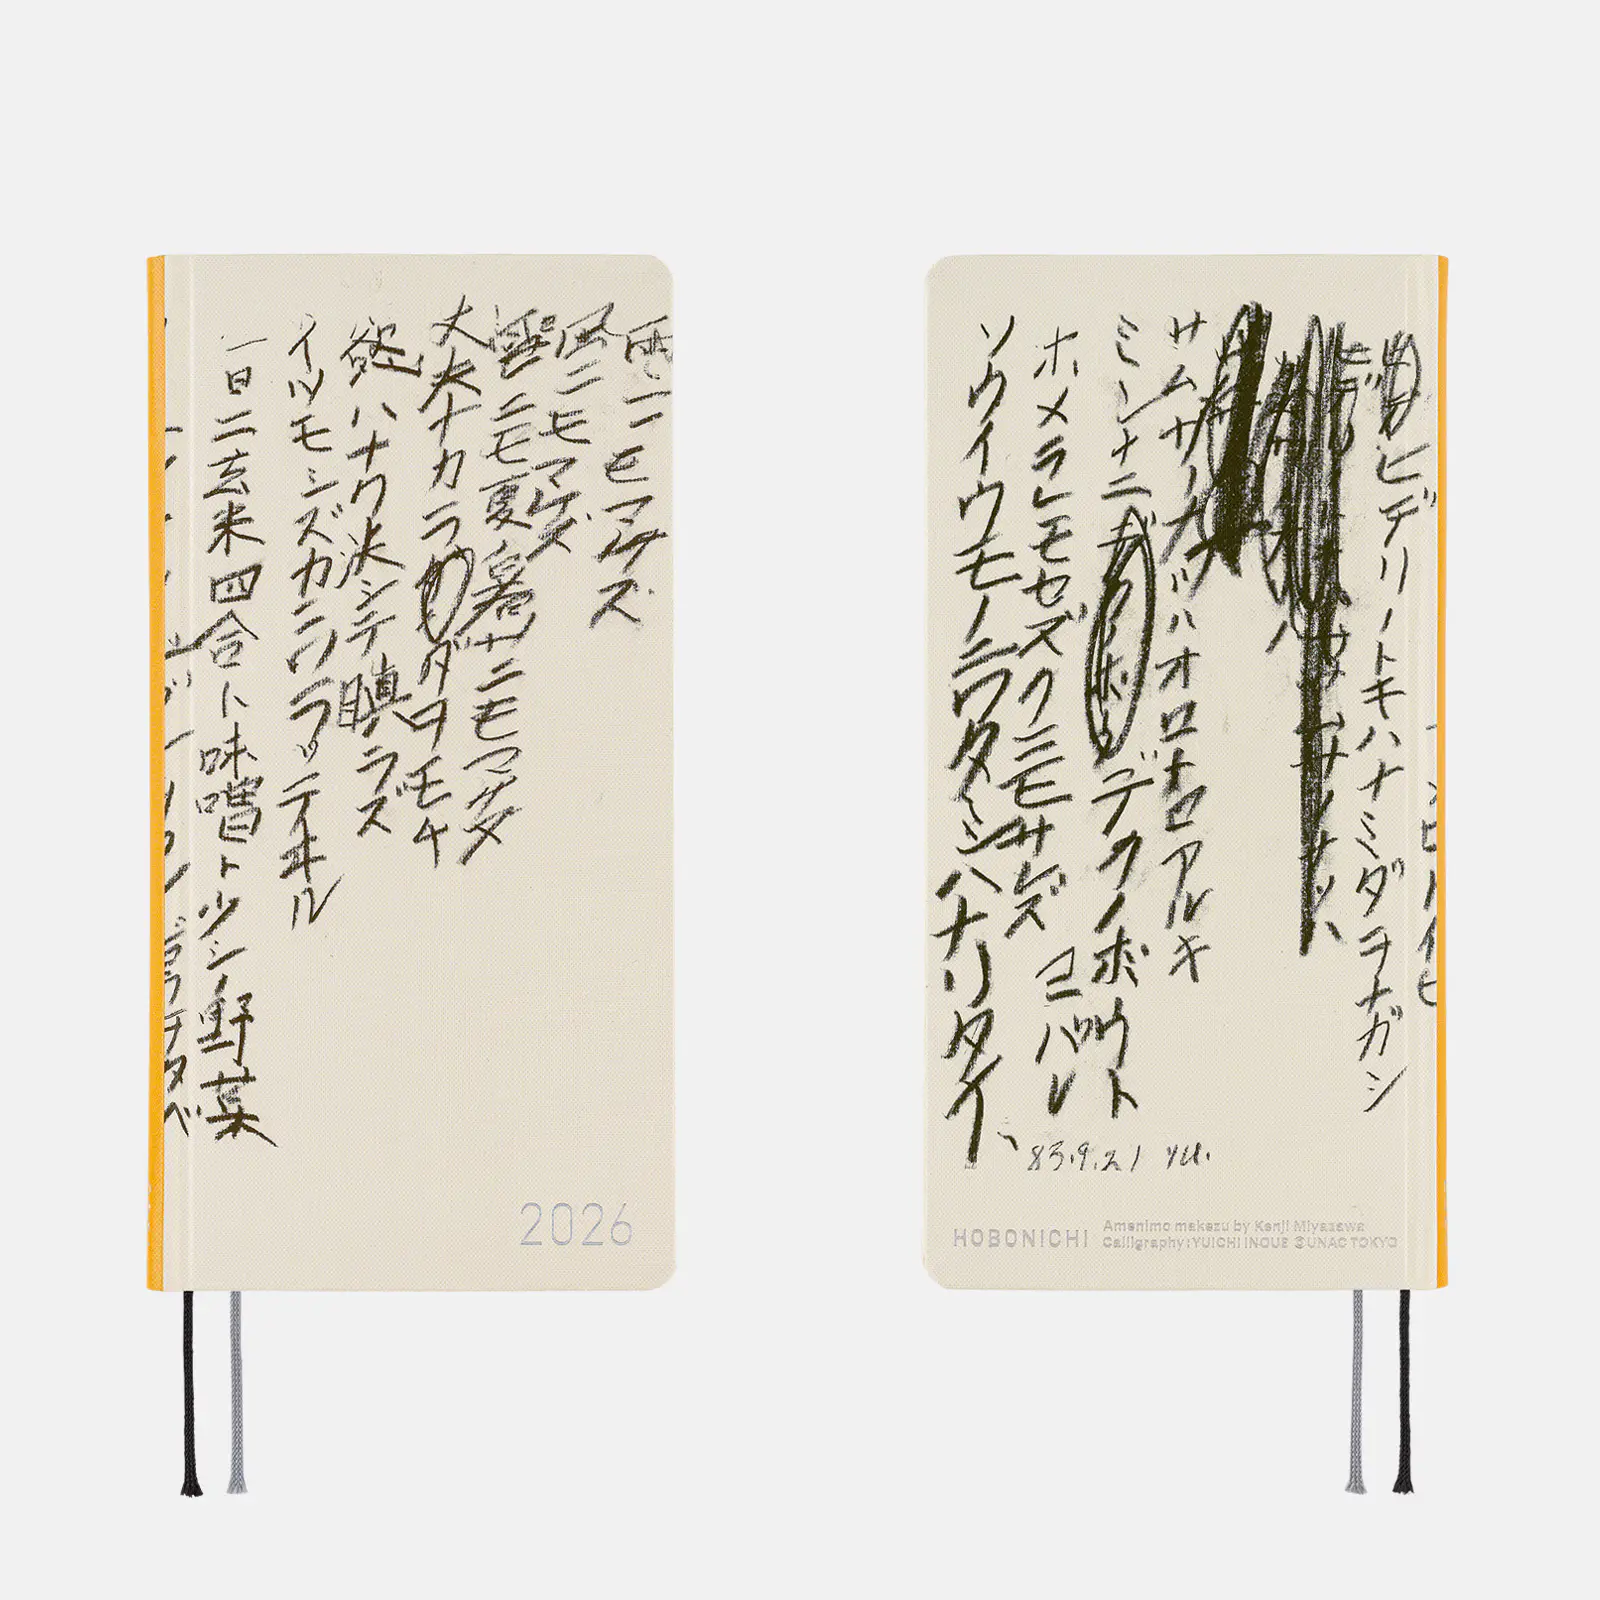 雨ニモマケズ
風ニモマケズ
雪ニモ夏暑サニモマケヌ
丈夫ナカラダヲモチ
慾ハナク決シテ瞋ラズ
イツモシズカニワラッテヰル
一日ニ玄米四合ト味噌ト少シノ野菜
タベ
2026
ヒデリノトキハナミダヲナガシ
サムサノナツハオロオロアルキ
ミンナニデクノボウト
ヨバレ
ホメラレモセズクニモサレズ
ソウイウモノニワタシハナリタイ、
83.9.21 yu.
HOBONICHI
Amenimo makezu by Kenji Miyazawa
Calligraphy:YUICHI INOUE ©UNAC TOKYO